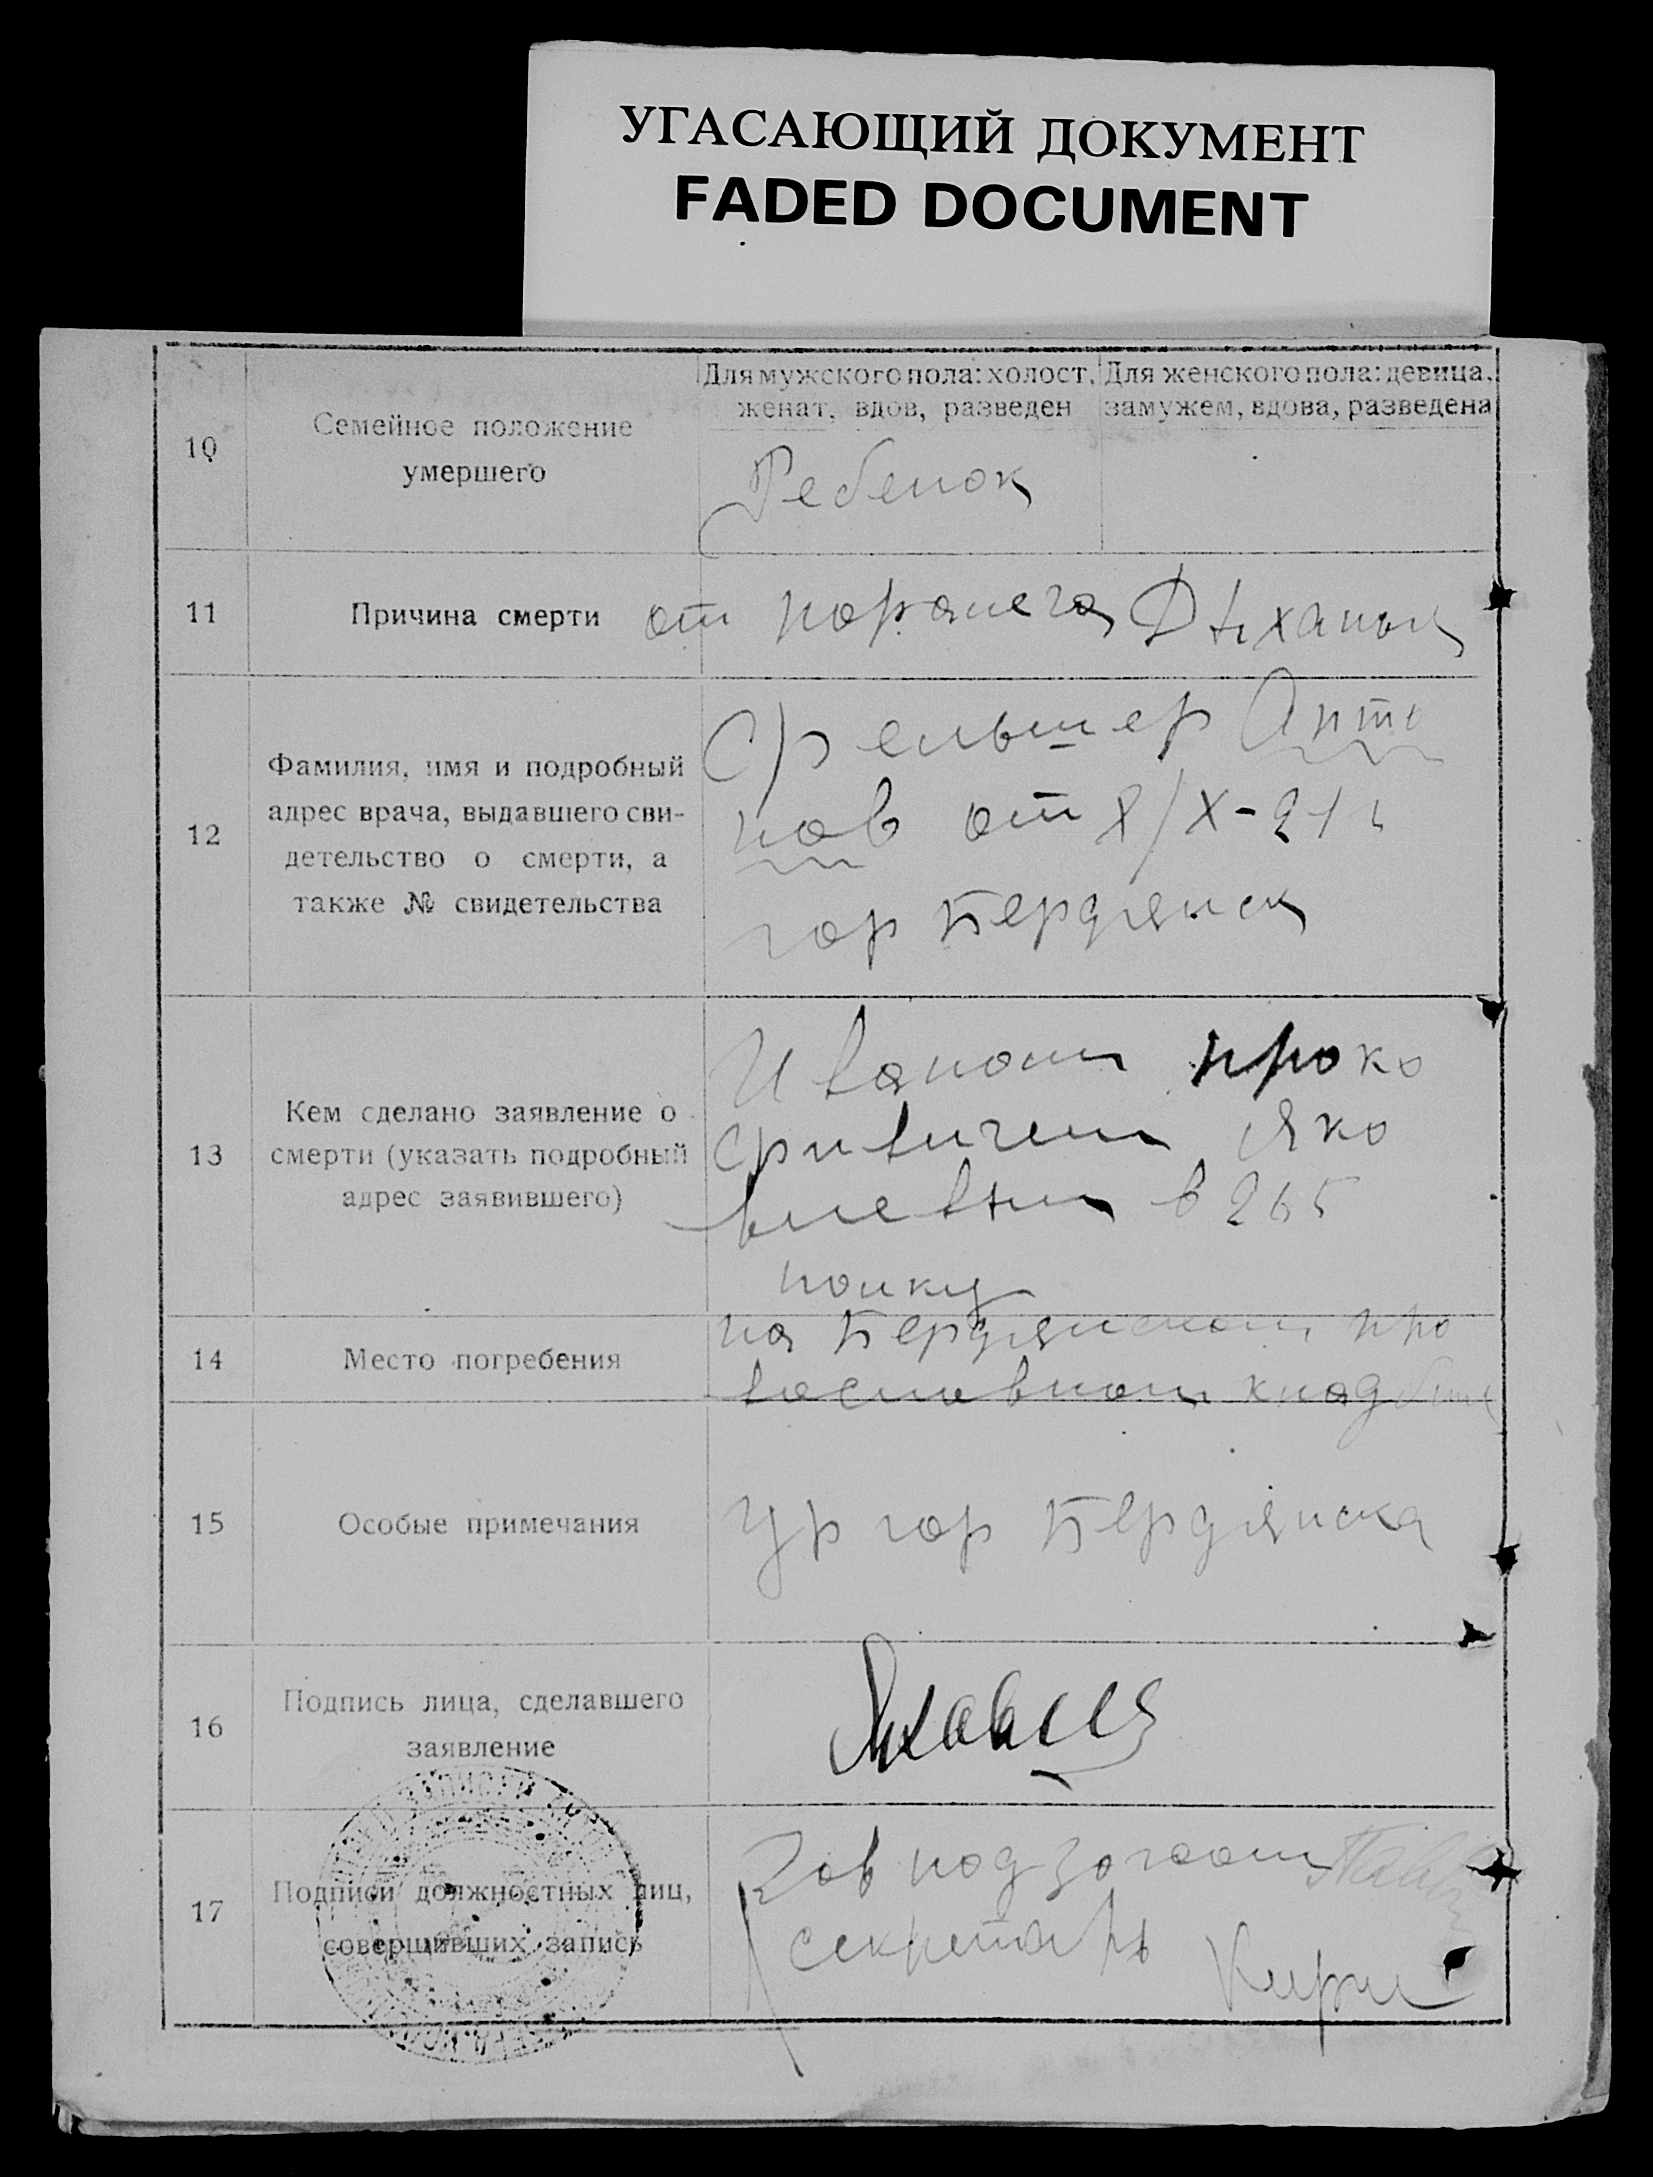 УГАСАЮЩИЙ ДОКУМЕНТ
FADED DOCUMENT
10
Семейное положение
умершего
Для мужского пола: холост,
женат, вдов, разведен
Для женского пола: девица,
замужем, вдова, разведена
Ребенок
11
Причина смерти
от Дыхания
12
Фамилия, имя и подробный
адрес врача, выдавшего сви-
детельство о смерти, а
также № свидетельства
Фельшер Анто
нов от
гор Бердянск
13
Кем сделано заявление о
смерти (указать подробный
адрес заявившего)
Иваном Проко
фивичем Яко
влевым в 265
полку
14
Место погребения
на Бердянском пра
вославном кладбище
15
Особые примечания
Ур гор Бердянска
16
Подпись лица, сделавшего
заявление
17
Подписи должностных лиц,
совершивших запись
Зав под загсом
секретарь